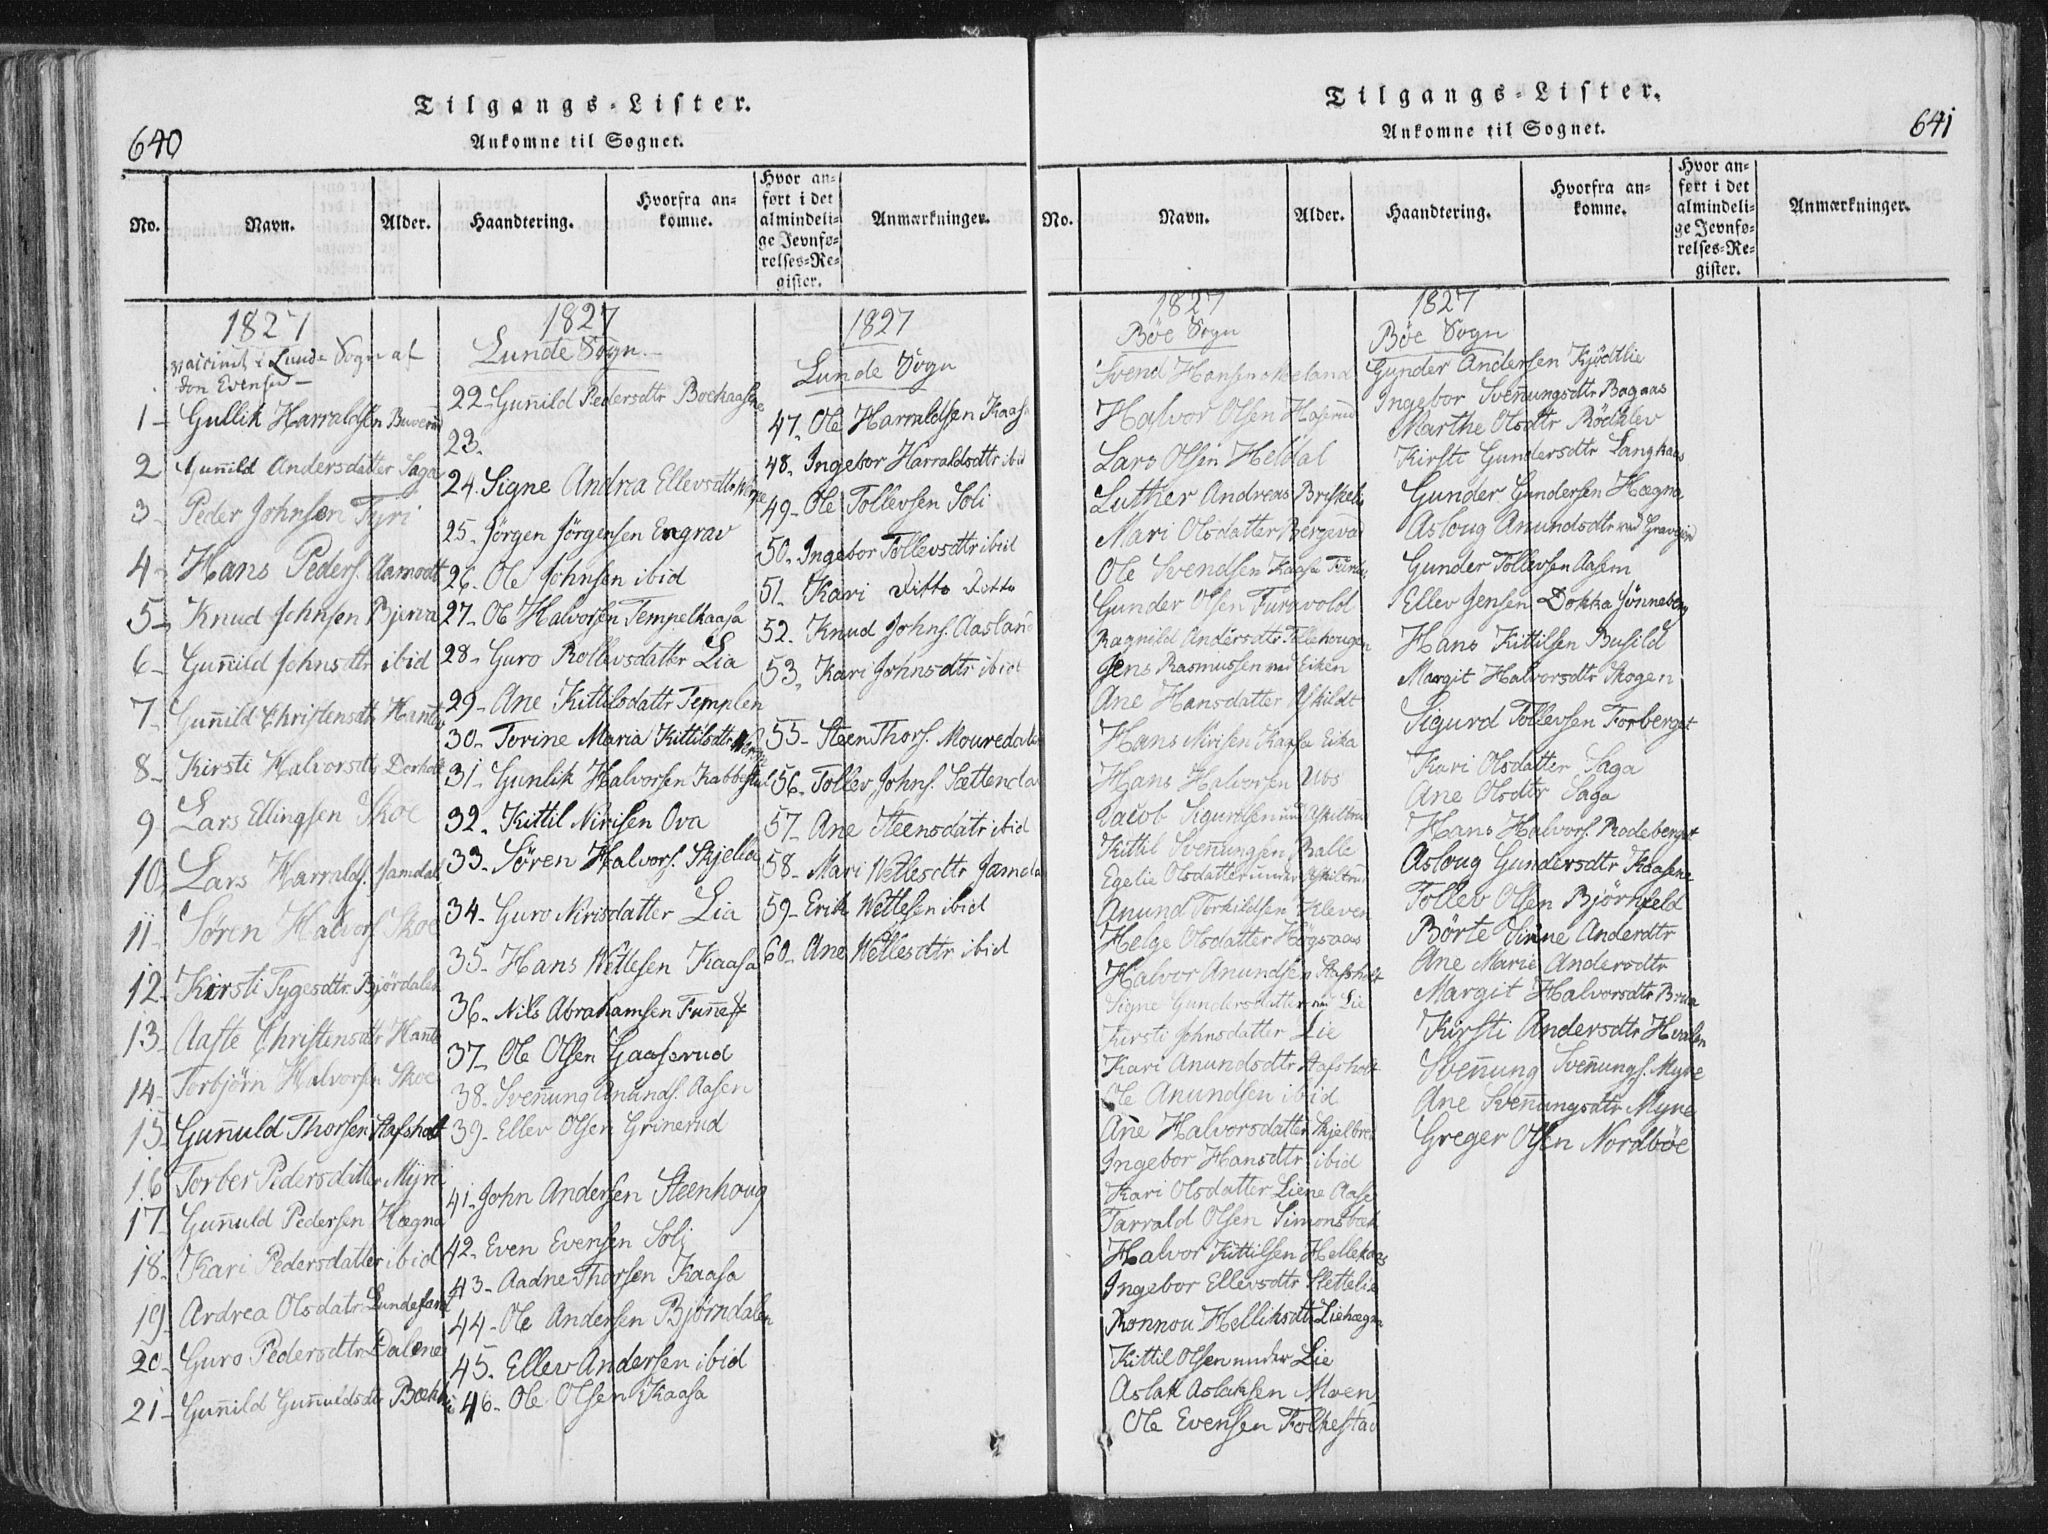 640
Tilgangs-Lister.
Ankomne til Sognet.
No.
Navn.
Alder.
Haandtering.
Hvorfra an-
komne.
Hvor an-
ført i det
almindeli-
ge Jevnfø-
relses-Re-
gister.
Anmærkninger.
1827
vaccinert i Lunde Sogn af
Evensen
1 Gullik Harraldsen Buverud
2 Gun̄ild Andersdatter Saga
3 Peder Johnsen Tyri
4 Hans Peders. Aamodt
5 Knud Johnsen Bjerva
6 Gun̄ild Johnsdtr ibid
7 Gun̄ild Christensdtr Hanta
8 Kirsti Halvorsdtr Dorholt
9 Lars Ellingsen Skoe
10 Lars Harralds. Jamdal
11 Søren Halvors Skoe
12 Kirsti Tygesdtr Bjørdalen
13 Aaste Christensdtr Hanta
14 Torbjørn Halvorsen Skoe
15 Gun̄uld Thorsen Stafsholt
16 Torber Pedersdatter Myra
17 Gun̄uld Pedersen Hægna
18 Kari Pedersdatter ibid
19 Andrea Olsdatr Lundefard
20 Guro Pedersdtr Dalene
21 Gun̄ild Gun̄uldsdtr Bækhus
1827
Lunde Sogn.
22 Gun̄ild Pedersdtr Boekaasene
23.
24. Signe Andrea Ellevsdtr Verpe
25. Jørgen Jørgensen Engrav
26. Ole Johnsen ibid
27. Ole Halvorsen Tempelkaasa
28. Guro Rollevsdatter Lia
29. Ane Kittilsdattr Templen
30. Torine Maria Kittilsdtr
31. Gunlik Halvorsen Kabbestul
32. Kittil Nirisen Ova
33. Søren Halvors. Skjelia
34. Guro Nirisdatter Lia
35. Hans Wetlesen Kaasa
36. Nils Abrahamsen Fun̄e
37. Ole Olsen Gaaserud
38. Sven̄ung Anunds. Aasen
39. Ellev Olsen Grinerud
41. John Andersen Steenhoug
42. Even Evensen Soli
43. Aadne Thorsen Kaasa
44. Ole Andersen Bjørndalen
45. Ellev Andersen ibid
46. Ole Olsen Kaasa
1827
Lunde Sogn
47. Ole Harraldsen Kaasa
48. Ingebor Harraldsdtr ibid
49. Ole Tollevsen Soli
50. Ingebor Tollevsdtr ibid
51. Kari Ditto Ditto
52. Knud Johns. Aasland
53. Kari Johnsdtr ibid
55. Steen Thors. Mouredalen
56. Tollev Johns. Sættendal
57. Ane Steensdatr ibid
58. Mari Wetlesdtr Jamdal
59. Erik Wetlesen ibid
60. Ane Wetlesdtr ibid
Tilgangs-Lister.
Ankomne til Sognet.
641
No.
Navn.
Alder.
Haandtering.
Hvorfra an-
komne.
Hvor an-
ført i det
almindeli-
ge Jevnfø-
relses-Re-
gister.
Anmærkninger.
1827
Bøe Sogn
Svend Hansen Meland
Halvor Olsen Haserud
Lars Olsen Heldal
Luther Andreas Briskeli
Mari Olsdatter Bergevad
Ole Svendsen Kaasa
Gunder Olsen Furuvold
Ragnild Andersdtr Tillehougen
Jens Rasmussen ved Eiken
Ane Hansdatter Askildt
Hans Nirisen Kaasa Eika
Hans Halvorsen Ubs
Jacob Sigurdsen und Askiltrud
Kittil Sven̄ungsen Balle
Egelie Olsdatter under Askiltrud
Anund Torkildsen Kleven
Helge Olsdatter Høgsaas
Halvor Anundsen Stafsholt
Signe Gundersdatter ved Lie
Kirsti Johnsdatter Lie
Kari Anundsdtr Stafsholt
Ole Anundsen ibid
Ane Halvorsdatter Skjelbred
Ingebor Hansdtr ibid
Kari Olsdatter Liene Aase
Tarrald Olsen Simonsbæk
Halvor Kittilsen Hellekaas
Ingebor Ellevsdtr Slettelie
Ronnou Helliksdtr Liehægna
Kittil Olsen under Lie
Aslak Aslaksen Moen
Ole Evensen Folkestad
1827
Bøe Sogn
Gunder Andersen Kjødtlie
Ingebor Sven̄ungsdtr Bagaas
Marthe Olsdtr Rødklev
Kirsti Gundersdtr Langkaas
Gunder Gundersen Hægna
Asloug Anundsdtr ved Graveje
Gunder Tollevsen Aasem
Ellev Jensen Dokka Jønneberg
Hans Kittilsen Busild
Margit Halvorsdtr Skogen
Sigurd Tollevsen Forberget
Kari Olsdatter Saga
Ane Olsdtr Saga
Hans Halvors. Rodeberget
Asloug Gundersdtr Kaasene
Tollev Olsen Bjørnfeld
Børte Sirine Anderdtr
Ane Marie Andersdtr
Margit Halvorsdtr Brua
Kirsti Andersdtr Hvalen
Sven̄ung Sven̄ungs. Myre
Ane Sven̄ungsdtr Myre
Greger Olsen Nordbøe